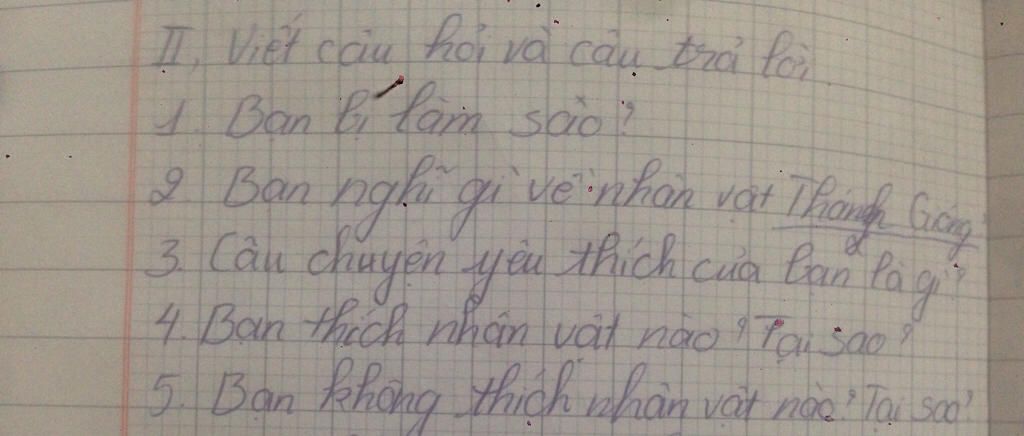 II, Viết câu hỏi và câu trả lời
1. Bạn bị làm sao?
2. Bạn nghĩ gì về nhân vật Thánh Gióng?
3. Câu chuyện yêu thích của bạn là gì?
4. Bạn thích nhân vật nào? Tại sao?
5. Bạn không thích nhân vật nào? Tại sao?